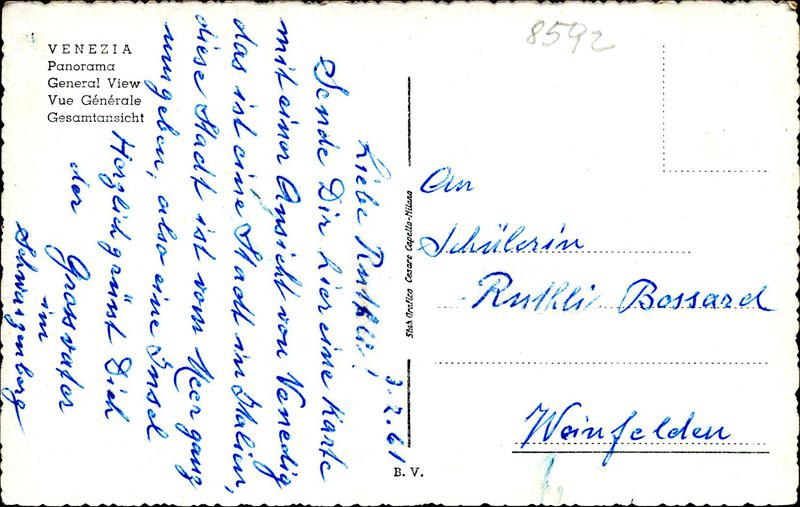 8592
VENEZIA
Panorama
General View
Vue Générale
Gesamtansicht
3.7.61
Liebe Ruthli!
Sende Dir hier eine Karte
mit einer Ansicht von Venedig
das ist eine Stadt in Italien,
diese Stadt ist vom Meer ganz
umgeben, also eine Insel
Herzlich grüsst Dich
der Grossvater
im
Schwarzenberg
Stab. Grafico Cesare Capello-Milano
An
Schülerin
Ruthli Bossard
Weinfelden
B. V.